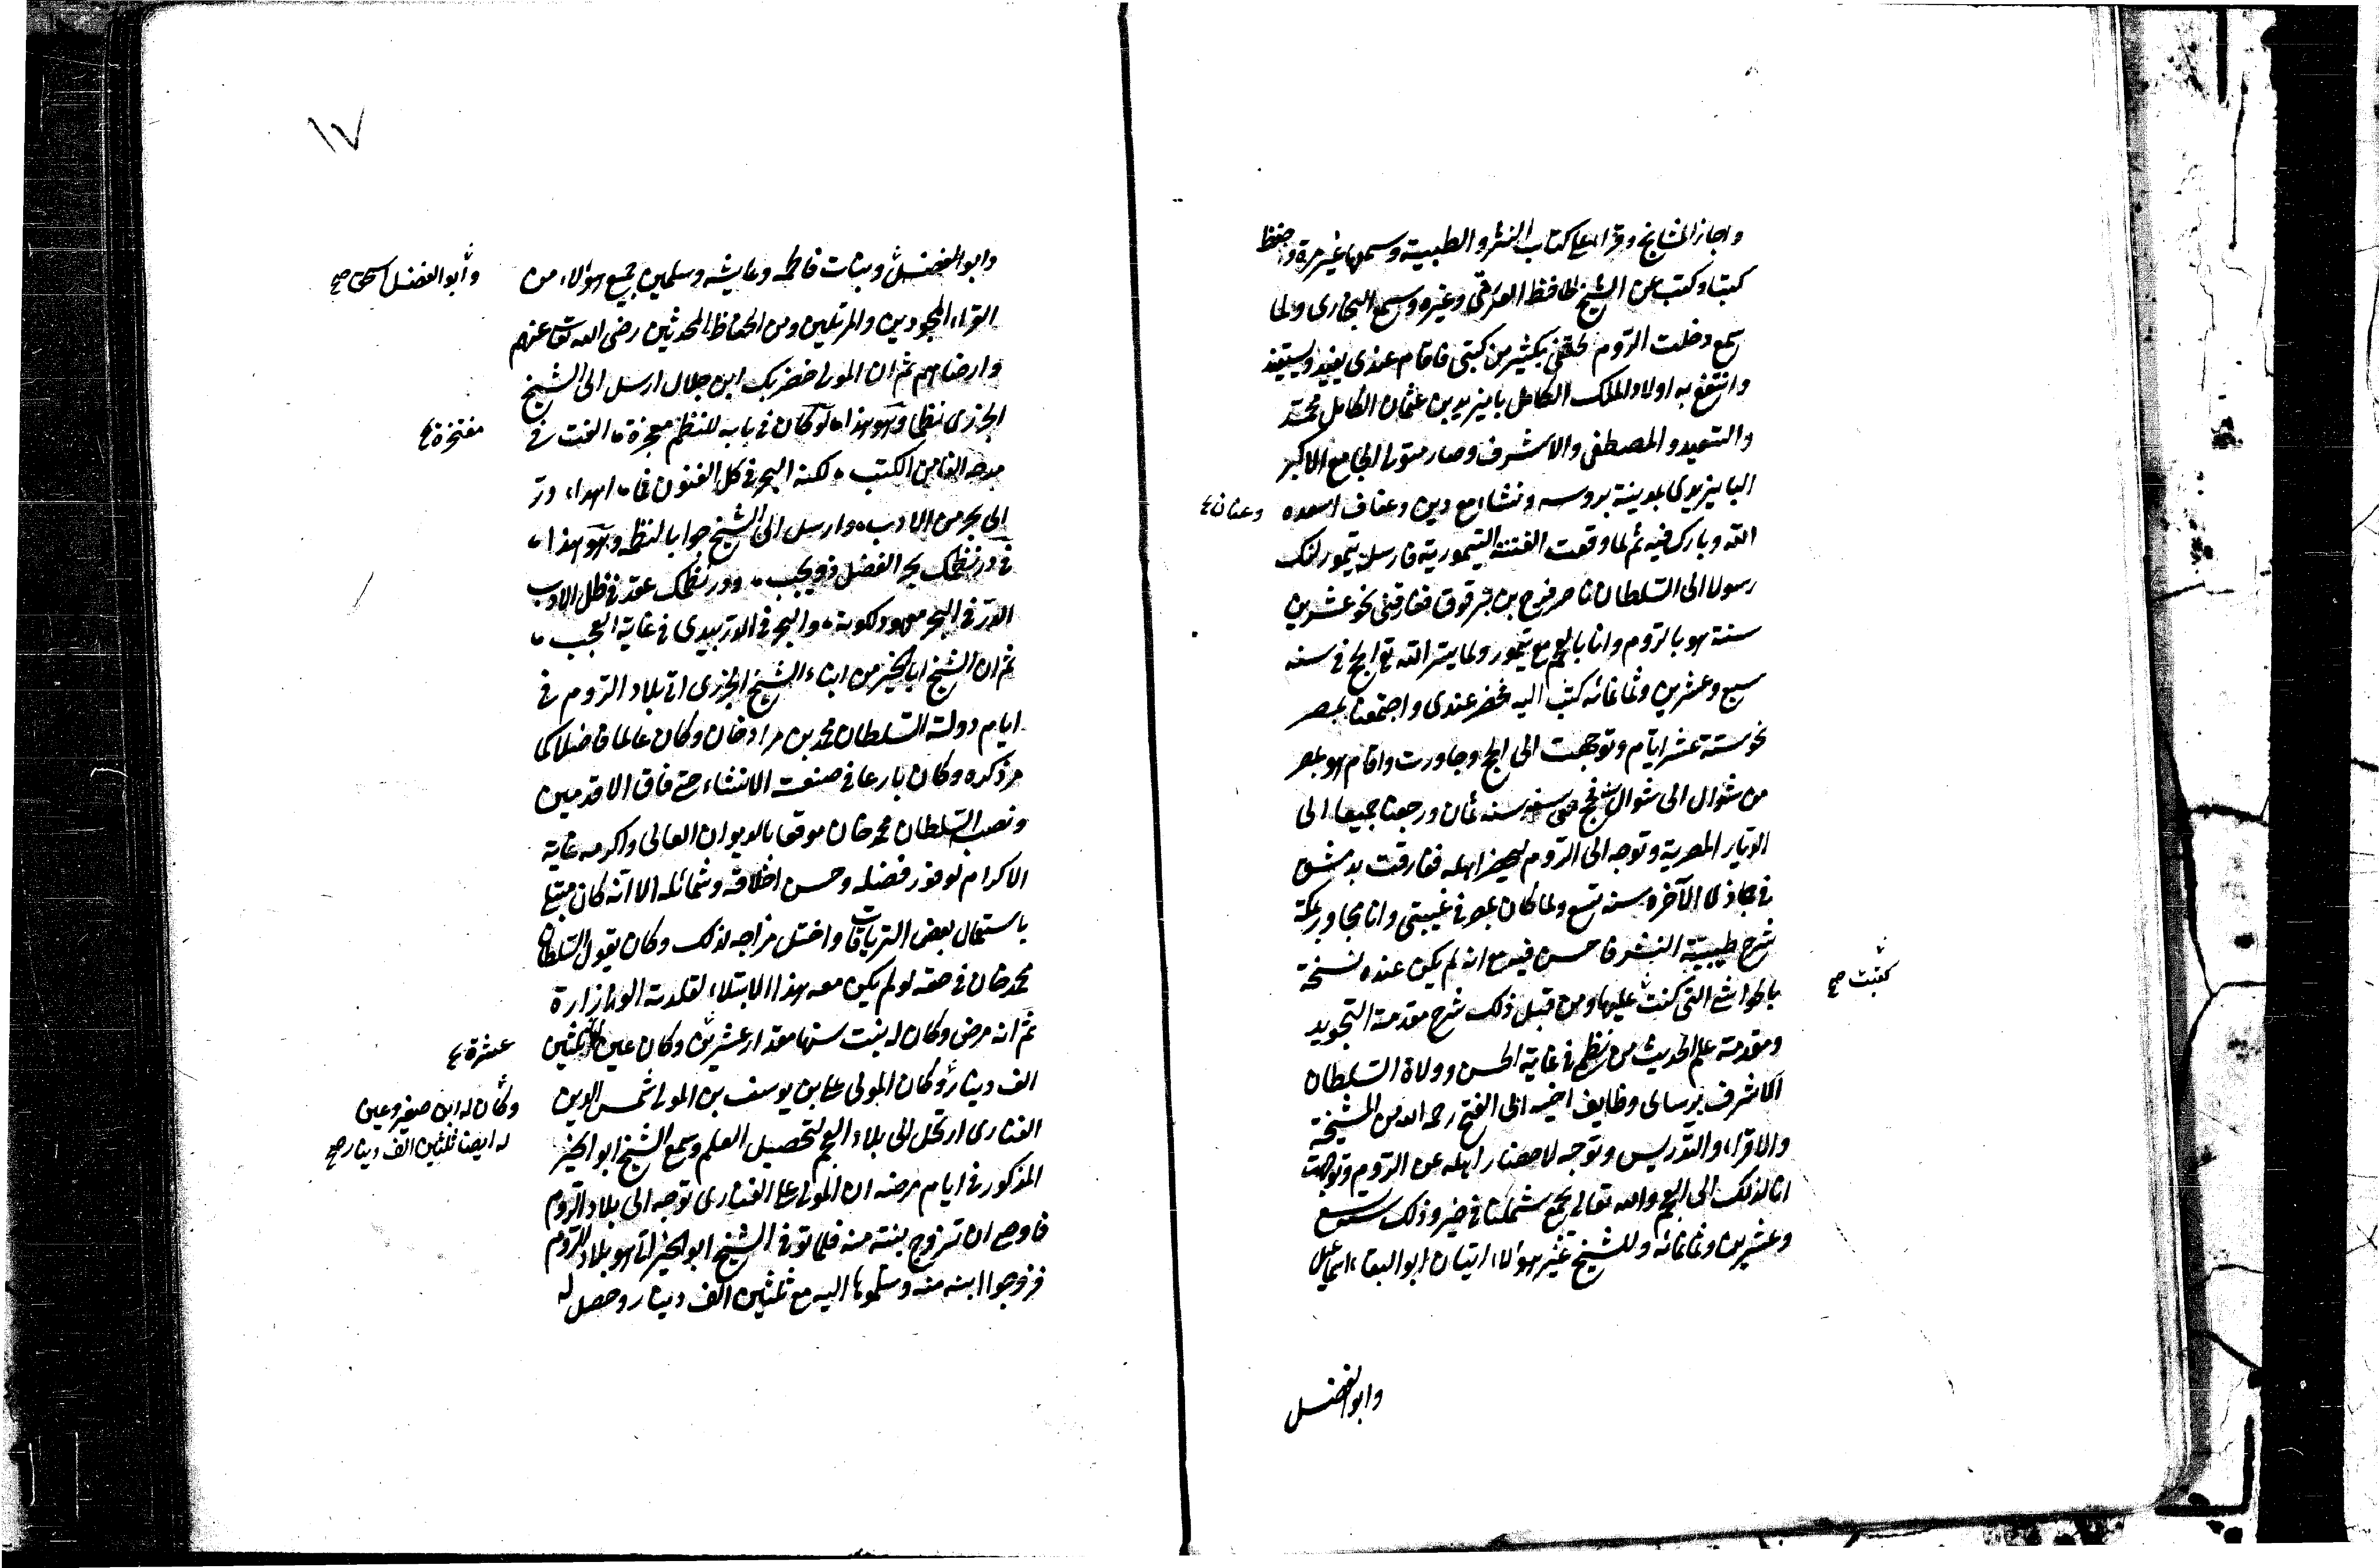 واجاز المشايخ وقراء على كتاب النشر والطيبة وسمعها غير مرة وحفظ
كتبا وكتب عن الشيخ الحافظ العراقى وغيره وسمع البخارى ولما
سمع دخلت الروم لحقنى بكثير من كتبى فاقام عندى يفيد ويستفيد
وانتفع به اولاد الملك الكامل بايزيد بن عثمان الكامل محمد
والسعيد والمصطفى والاشرف وصار متولى الجامع الاكبر
البايزيدى بمدينة بروسه ونشاء مع دين وعفاف اسعده
وعنان
الله وبارك فيه ثم لما وقعت الفتنة التيمورية فارسله تيمورلنك
رسولا الى السلطان ناصر فرج بن برقوق ففارقنى نحو عشرين
سنة هو بالروم وانا بالعجم مع تيمور ولما يسر الله تع الحج فى سنه
سبع وعشرين وثمانمائه كتب اليه فحضر عندى واجتمعنا بمصر
نحو ستة عشر ايام وتوجهت الى الحج وجاورت واقام هو بمصر
من شوال الى شوال فحج سنه ثمان ورجعنا جميعا الى
الديار المصرية وتوجه الى الروم ليحضر اهله ففارقت بدمشق
فى جماذى الآخره سنه تسع ولما كان بمصر فى غيبتى وانا مجاور بمكة
شرح طيبة النشر فاحسن فيه مع انه لم يكن عنده نسخة
بالحواشى التى كنت عليها ومن قبل ذلك شرح مقدمة التجويد
كتبت صح
ومقدمة علم الحديث من نظمى فى غاية الحسن وولاة السلطان
الاشرف برساى وظايف اخيه ابى الفتح رحمه الله من المشيخة
والاقراء والتدريس وتوجه لاحضار اهله من الروم وتوجهت
انا لذلك الى العجم والله تعالى يجمع شملنا فى خير وذلك سنه تسع
وعشرين وثمانمائه وللشيخ غير هؤلاء ابنان ابو البقاء اسماعيل
وابو الفضل
١٧
وابو الفضل وبنات فاطمه وعايشه وسلمى جميع هؤلاء من
وابو الفضل اسحق صح
القراء المجودين والمرتلين ومن الحفاظ المحدثين رضى الله تعالى عنهم
وارضاهم ثم ان المولى خضر بك ابن جلال ارسل الى الشيخ
الجزرى نظما وهو هذا لو كان فى بابه للنظم معجزة الفت فى
مفتخرة
مدحه الفا من الكتب لكنه البحر فى كل الفنون فما اهداء در
الى بحر من الادب وارسل الى الشيخ جوابا لنظمه وهو هذا
فى در نظمك بحر الفضل ذو لجب ودر نظمك عقد فى ظل الادب
الدر فى البحر معهود لكونه والبحر فى الدر يبدى فى غاية العجب
ثم ان الشيخ ابا الخير من ابناء الشيخ الجزرى اتى بلاد الروم فى
ايام دولة السلطان محمد بن مراد خان وكان عالما فاضلا كما
مر ذكره وكان بارعا فى صنعت الانشاء حتى فاق الاقدمين
ونصبه السلطان محمد خان موقعا بالديوان العالى واكرمه غاية
الاكرام لوفور فضله وحسن اخلاقه وشمائله الا انه كان مبتلى
باستعمال بعض الترياقات واختل مزاجه لذلك وكان يقول السلطان
محمد خان فى حقه لو لم يكن معه هذا الابتلاء لقلدته الوزارة
ثم انه مرض وكان له بنت سنها مقدار عشرين وكان عين لها ثلثين
عشرة
الف دينار وكان المولى على بن يوسف بن المولى شمس الدين
وكان له ابن صغير وعين
له ايضا ثلثين الف دينار صح
الفنارى ارتحل الى بلاد العجم لتحصيل العلم وسمع الشيخ ابو الخير
المذكور فى ايام مرضه ان المولى على الفنارى توجه الى بلاد الروم
فاوصى ان تزوج بنته منه فلما توفى الشيخ ابو الخير اتى هو بلاد الروم
فزوجوا ابنه منه وسلموها اليه مع ثلثين الف دينار وحصل له